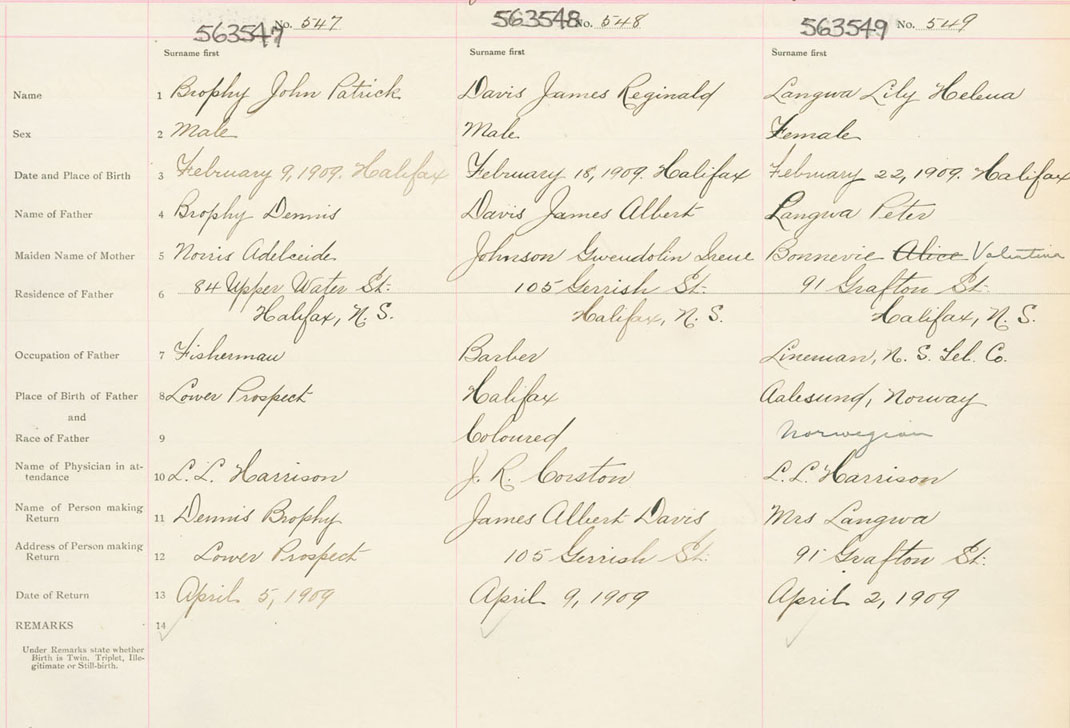 563547 No. 547 563548 No. 548 563549 No. 549
Surname first Surname first Surname first
Name 1 Brophy John Patrick Davis James Reginald Langwa Lily Helena
Sex 2 Male Male Female
Date and Place of Birth 3 February 9, 1909. Halifax February 18, 1909. Halifax February 22, 1909. Halifax
Name of Father 4 Brophy Dennis Davis James Albert Langwa Peter
Maiden Name of Mother 5 Norris Adelceide Johnson Gwendolin Irene Bonnevie Alice Valentina
Residence of Father 6 84 Upper Water St: 105 Gerrish St: 91 Grafton St:
Halifax, N. S. Halifax, N. S. Halifax, N. S.
Occupation of Father 7 Fisherman Barber Lineman, N. S. Tel. Co.
Place of Birth of Father 8 Lower Prospect Halifax Aalesund, Norway
and
Race of Father 9 Coloured Norwegian
Name of Physician in at-
tendance 10 L. L. Harrison J. R. Corston L. L. Harrison
Name of Person making
Return 11 Dennis Brophy James Albert Davis Mrs Langwa
Address of Person making
Return 12 Lower Prospect 105 Gerrish St: 91 Grafton St:
Date of Return 13 April 5, 1909 April 9, 1909 April 2, 1909
REMARKS 14
Under Remarks state whether
Birth is Twin, Triplet, Ille-
gitimate or Still-birth.